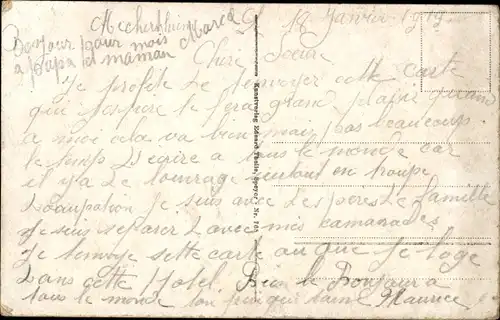 18 Janvier 1919
Bonjour pour mois
a papa et maman Marcel
Chère Soeur
Je profite de t'envoyer cette carte
qui j'espère te fera grand plaisir quand
a moi cela va bien mais pas beaucoup
le temp D egrire a tous le monde car
il y a de louvrage surtout en troupe
Doccupation je suis avec des peres de famille
Je suis separer D avec mes camarades
Je t envoye sette carte au que Je loge
Dans cette Hotel. Bien le Bonjour a
tous le monde ton frere qui t'aime Maurice
Kunstverlag Eduard Speyer Nr.